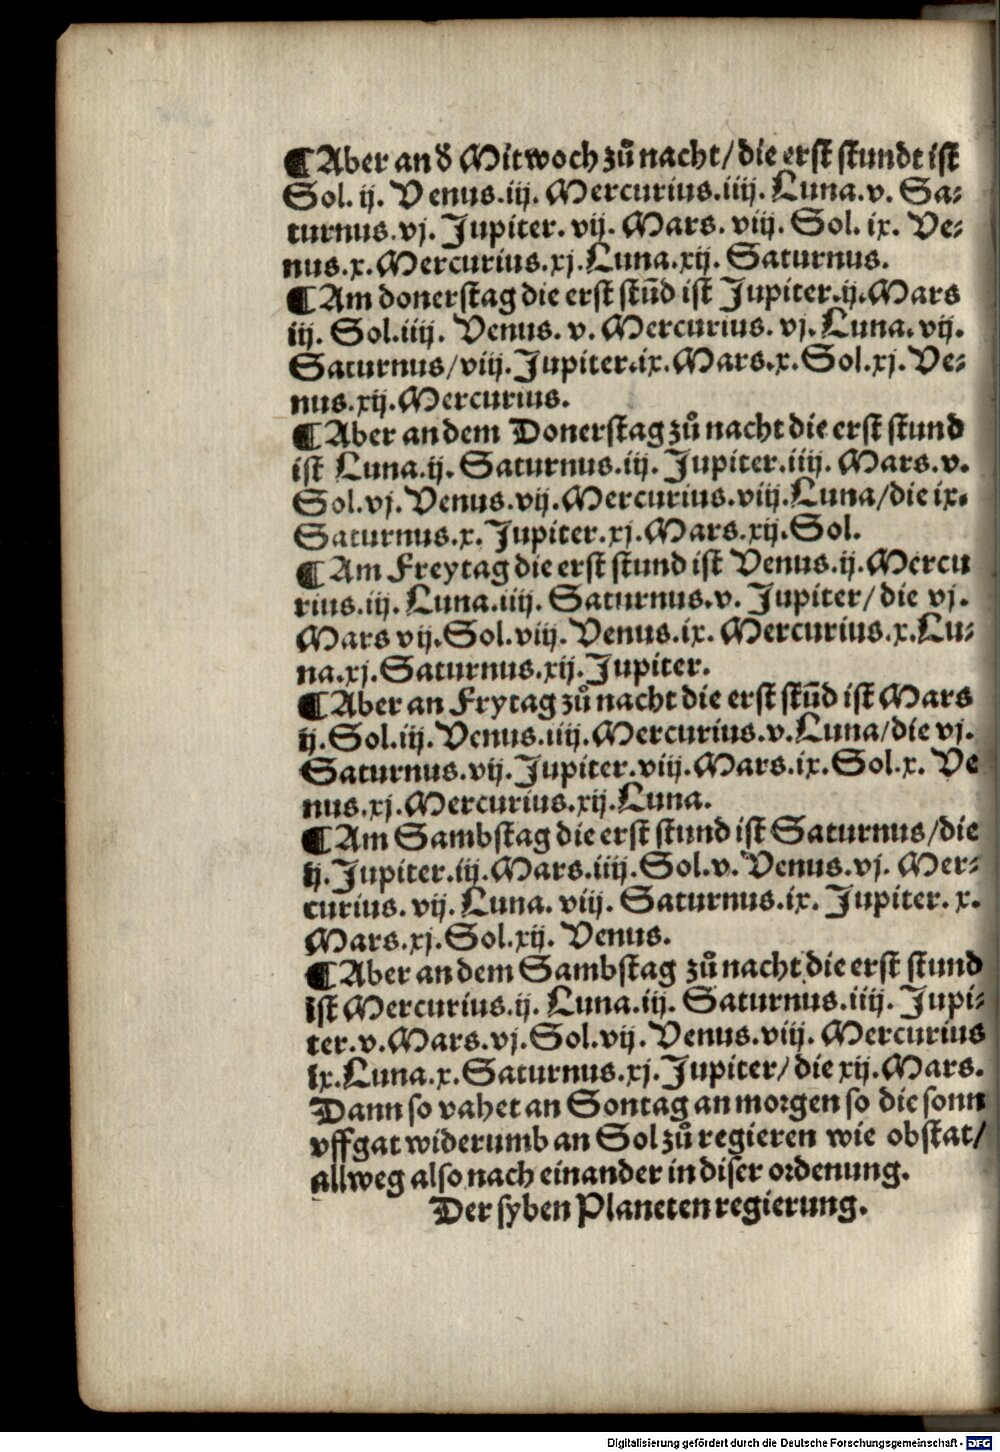 ¶Aber an d̕ Mitwoch zů nacht/die erst stundt ist
Sol. ij. Venus.iij. Mercurius.iiij. Luna.v. Sa⸗
turnus.vj. Jupiter. vij. Mars. viij. Sol. ix. Ve⸗
nus.x.Mercurius.xj.Luna.xij. Saturnus.
¶Am donerstag die erst stūd ist Jupiter.ij.Mars
iij. Sol.iiij. Venus. v. Mercurius. vj. Luna. vij.
Saturnus/viij.Jupiter.ix.Mars.x.Sol.xj. Ve⸗
nus.xij.Mercurius.
¶Aber an dem Donerstag zů nacht die erst stund
ist Luna.ij. Saturnus.iij. Jupiter.iiij. Mars.v.
Sol.vj.Venus.vij.Mercurius.viij.Luna/die ix.
Saturnus.x. Jupiter.xj.Mars.xij.Sol.
¶Am Freytag die erst stund ist Venus.ij.Mercu
rius.iij. Luna.iiij. Saturnus.v. Jupiter/die vj.
Mars vij.Sol.viij.Venus.ix. Mercurius.x.Lu⸗
na.xj.Saturnus.xij.Jupiter.
¶Aber an Frytag zů nacht die erst stūd ist Mars
ij.Sol.iij.Venus.iiij.Mercurius.v.Luna/die vj.
Saturnus.vij.Jupiter.viij.Mars.ix.Sol.x. Ve
nus.xj.Mercurius.xij.Luna.
¶Am Sambstag die erst stund ist Saturnus/die
ij.Jupiter.iij.Mars.iiij.Sol.v.Venus.vj. Mer⸗
curius. vij. Luna. viij. Saturnus.ix. Jupiter. x.
Mars.xj.Sol.xij. Venus.
¶Aber an dem Sambstag zů nacht die erst stund
ist Mercurius.ij. Luna.iij. Saturnus.iiij. Jupi⸗
ter.v.Mars.vj.Sol.vij.Venus.viij. Mercurius
ix.Luna.x.Saturnus.xj.Jupiter/die xij.Mars.
Dann so vahet an Sontag an morgen so die sonn
vffgat widerumb an Sol zů regieren wie obstat/
allweg also nach einander in diser ordenung.
Der syben Planeten regierung.
Digitalisierung gefördert durch die Deutsche Forschungsgemeinschaft - DFG